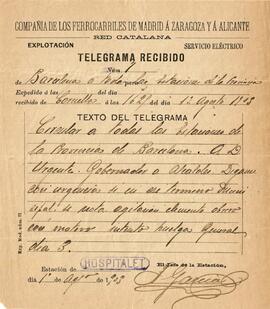 COMPAÑIA DE LOS FERROCARRILES DE MADRID Á ZARAGOZA Y Á ALICANTE
RED CATALANA
EXPLOTACIÓN SERVICIO ELÉCTRICO
TELEGRAMA RECIBIDO
Núm. 1
de Barcelona a todas las estaciones de la Provincia
Expedido á las del día
recibido de Cornellá á las 16 del día 1º Agosto 1903
TEXTO DEL TELEGRAMA
Circular a todas las estaciones
de la Provincia de Barcelona.
Urgente. Gobernador a Alcaldes. Digame
con urgencia si en ese termino Munici
pal se nota agitacion elemento obrero
con motivo intento huelga general
dia 3.
Estación de HOSPITALET El Jefe de la Estación,
día 1º de Agosto de 1903
García